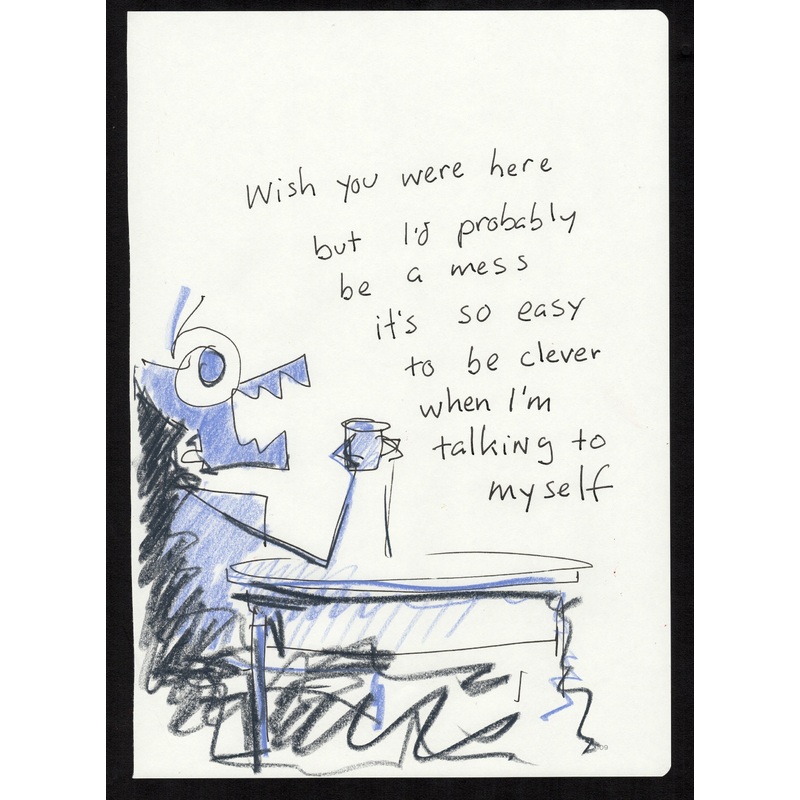 Wish you were here
but I'd probably
be a mess
it's so easy
to be clever
when I'm
talking to
myself